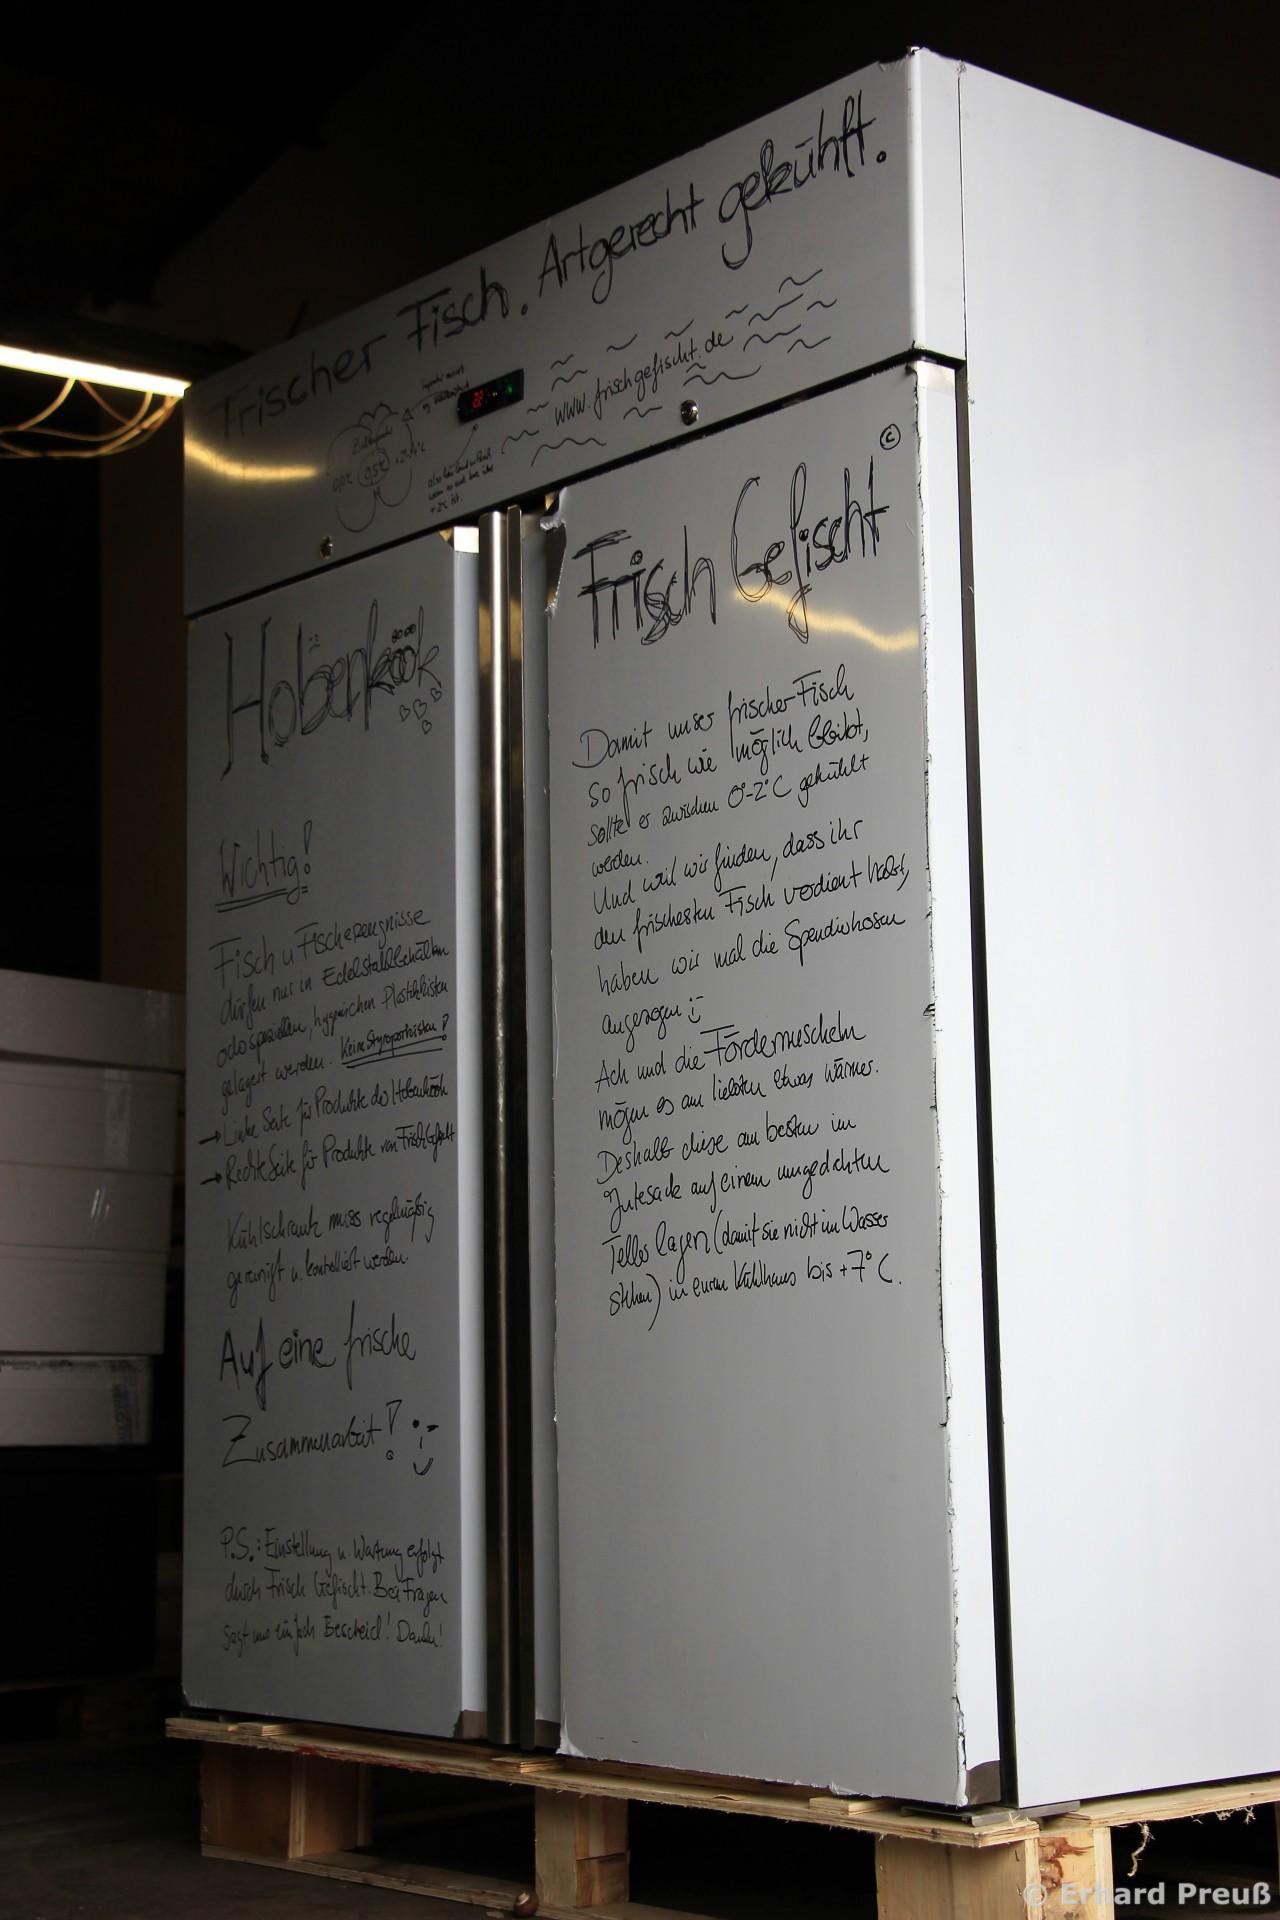 Frischer Fisch. Artgerecht gekühlt.
www.frischgefischt.de
0,5°C
+2°C ist.
Hobenköök
Wichtig!
Fisch u. Fischerzeugnisse
dürfen nur in Edelstahlbehälter
oder speziellen, hygienischen Plastikkisten
gelagert werden. Keine Styroporkisten!
→ Linke Seite für Produkte der Hobenköök
→ Rechte Seite für Produkte von FrischGefischt
Kühlschrank muss regelmäßig
gereinigt u. kontrolliert werden.
Auf eine frische
Zusammenarbeit! ;-)
P.S.: Einstellung u. Wartung erfolgt
durch Frisch Gefischt. Bei Fragen
sagt uns einfach Bescheid! Danke!
©
Frisch Gefischt
Damit unser frischer Fisch
so frisch wie möglich bleibt,
sollte er zwischen 0°-2°C gekühlt
werden.
Und weil wir finden, dass ihr
den frischesten Fisch verdient habt,
haben wir mal die Spendierhosen
angezogen :-)
Ach und die Fördemuscheln
mögen es am liebsten etwas wärmer.
Deshalb diese am besten im
Jutesack auf einem umgedrehten
Teller lagern (damit sie nicht im Wasser
stehen) in eurem Kühlhaus bis +7°C.
© Erhard Preuß